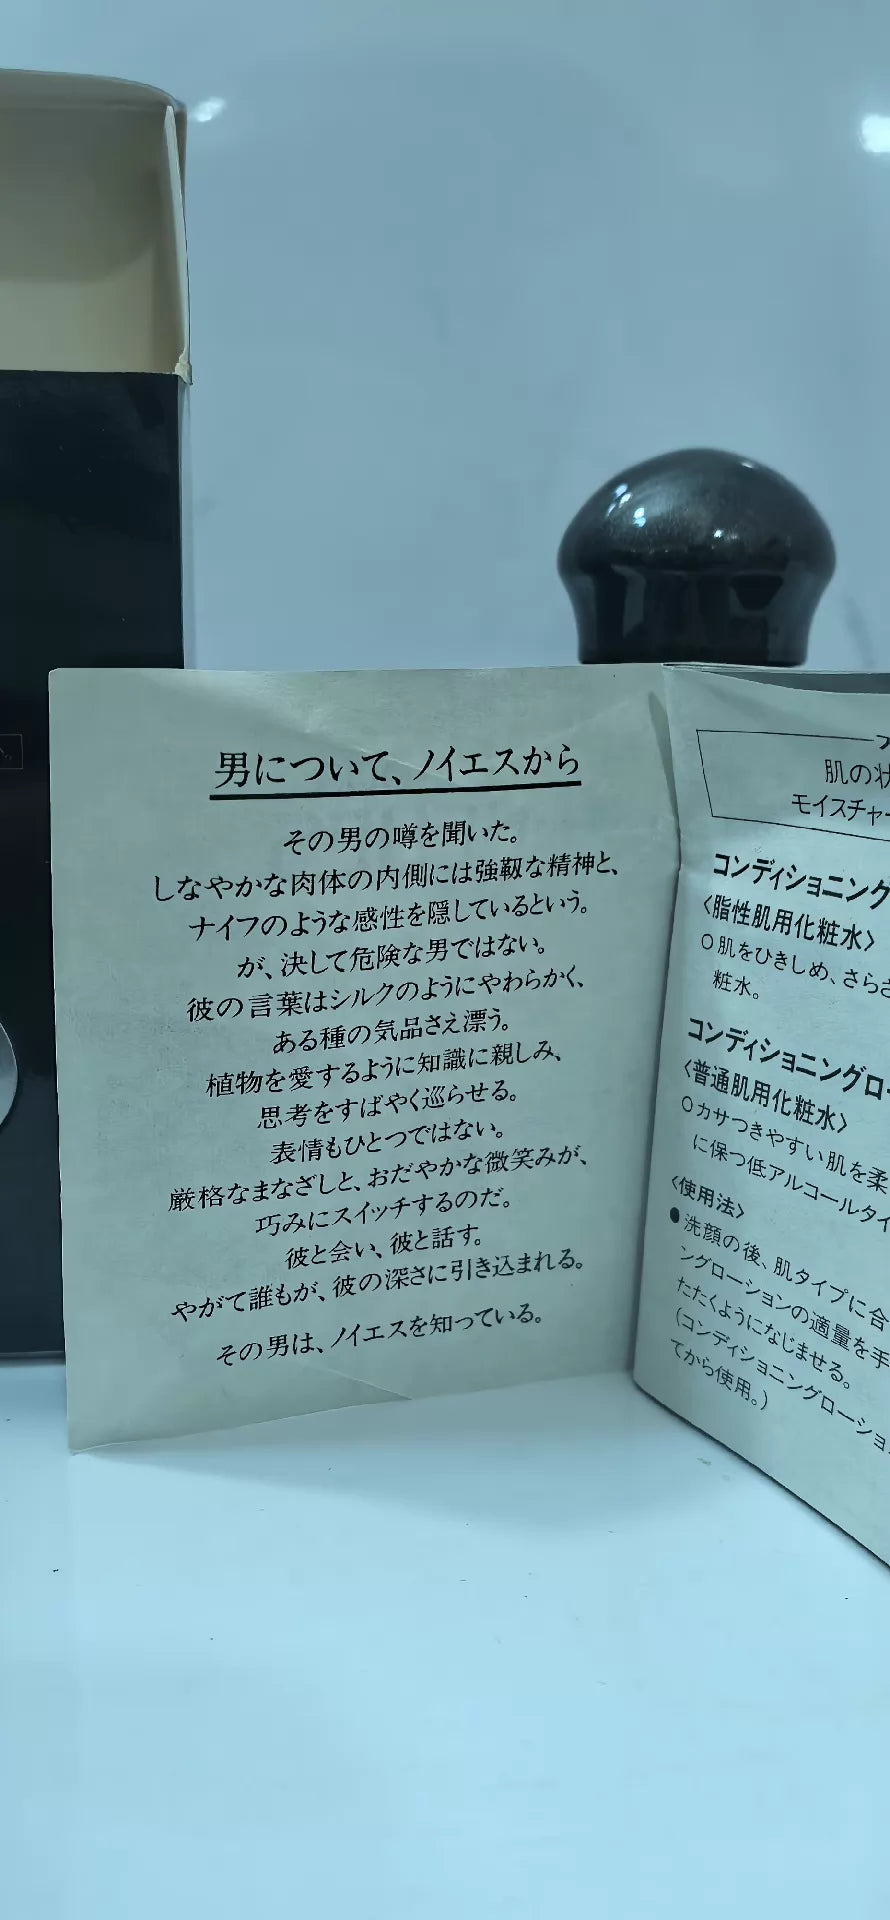 男について、ノイエスから
その男の噂を聞いた。
しなやかな肉体の内側には強靱な精神と、
ナイフのような感性を隠しているという。
が、決して危険な男ではない。
彼の言葉はシルクのようにやわらかく、
ある種の気品さえ漂う。
植物を愛するように知識に親しみ、
思考をすばやく巡らせる。
表情もひとつではない。
厳格なまなざしと、おだやかな微笑みが、
巧みにスイッチするのだ。
彼と会い、彼と話す。
やがて誰もが、彼の深さに引き込まれる。
その男は、ノイエスを知っている。
肌の状
モイスチャー
コンディショニング
〈脂性肌用化粧水〉
○肌をひきしめ、さらさ
粧水。
コンディショニングロー
〈普通肌用化粧水〉
○カサつきやすい肌を柔
に保つ低アルコールタイ
〈使用法〉
●洗顔の後、肌タイプに合
ングローションの適量を手
たたくようになじませる。
(コンディショニングローショ
てから使用。)